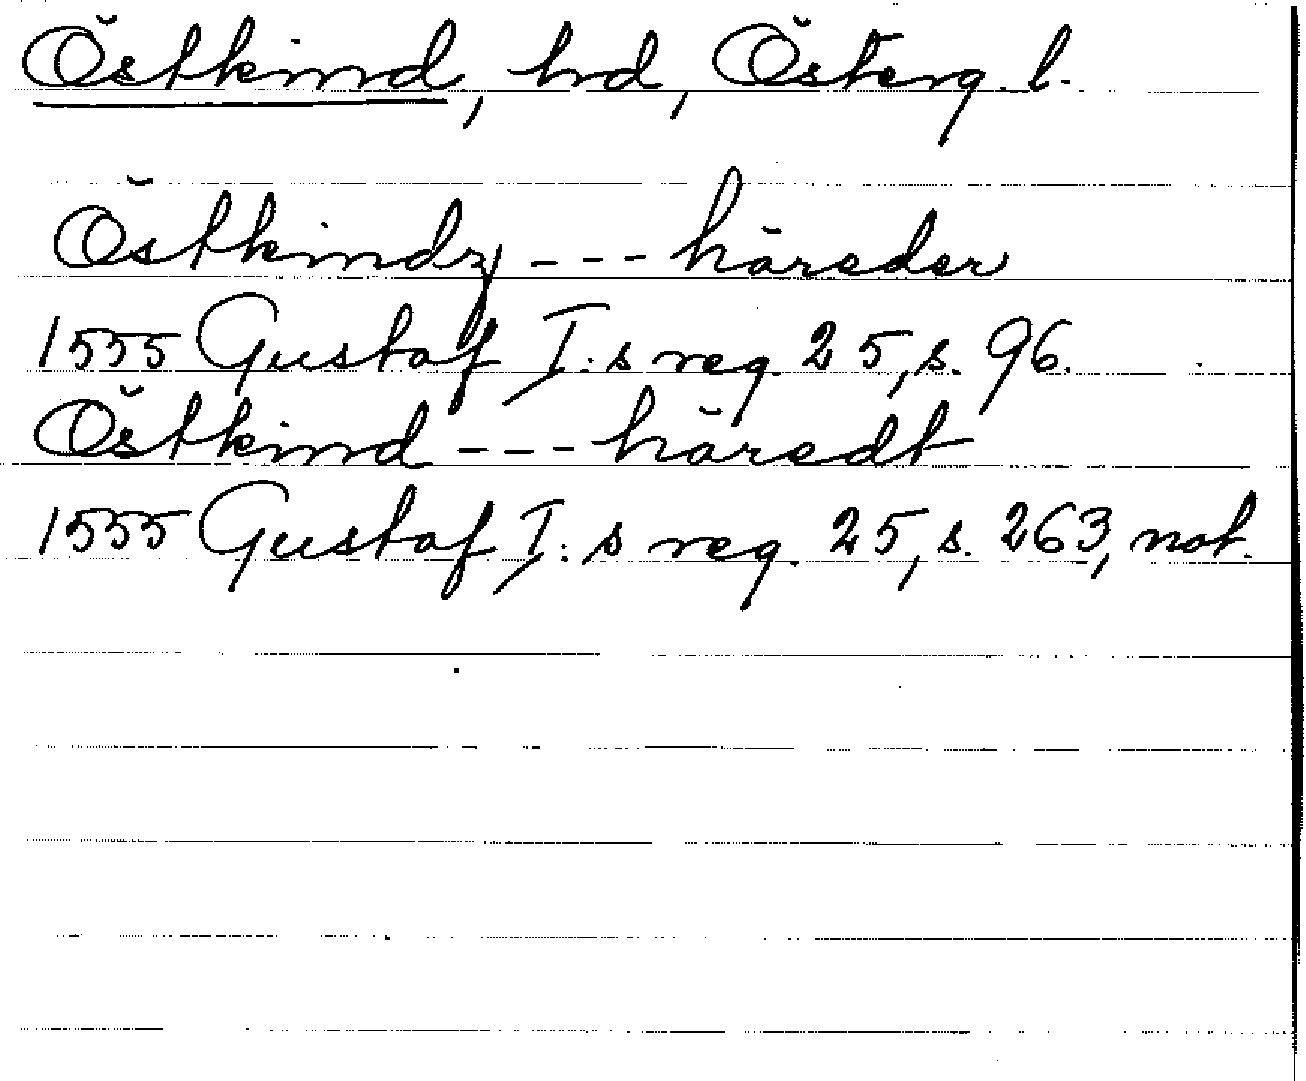 Östkind, hd, Österg. l.
Östkindz --- häreder
1555 Gustaf I:s reg. 25, s. 96.
Östkind --- häredt
1555 Gustaf I:s reg. 25, s. 263, not.